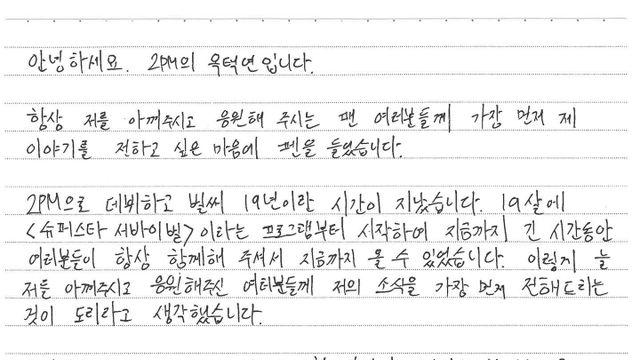 안녕하세요. 2PM의 옥택연입니다.
항상 저를 아껴주시고 응원해 주시는 팬 여러분들께 가장 먼저 제
이야기를 전하고 싶은 마음에 펜을 들었습니다.
2PM으로 데뷔하고 벌써 19년이란 시간이 지났습니다. 19살에
<슈퍼스타 서바이벌> 이라는 프로그램부터 시작하여 지금까지 긴 시간동안
여러분들이 항상 함께해 주셔서 지금까지 올 수 있었습니다. 이렇게 늘
저를 아껴주시고 응원해주신 여러분들께 저의 소식을 가장 먼저 전해드리는
것이 도리라고 생각했습니다.